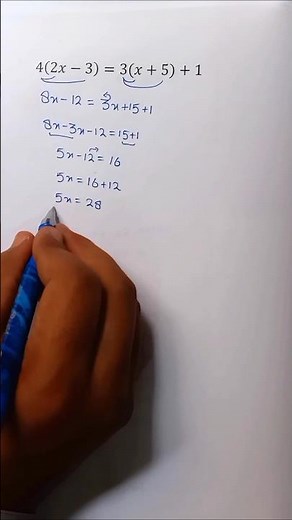 4(2x − 3) = 3(x + 5) + 1
8x - 12 = 3x+15+1
8x-3x-12 = 15+1
5x-12 = 16
5x = 16+12
5x = 28